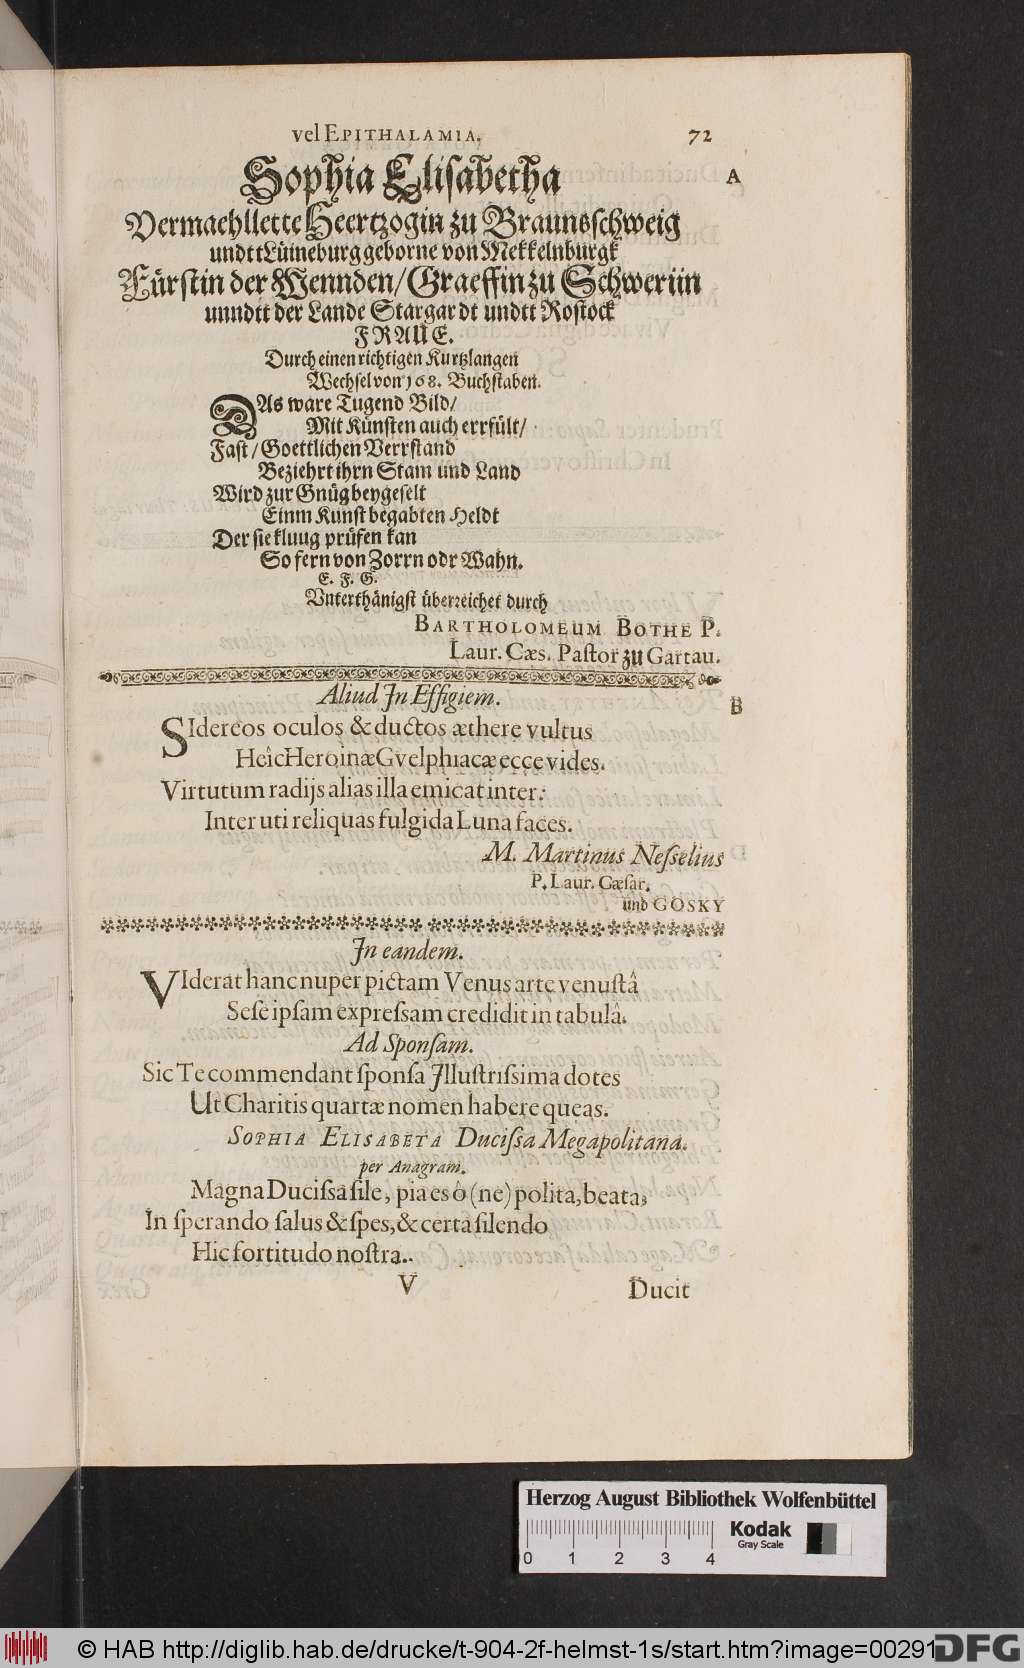 vel EPITHALAMIA. 72
Sophia Elisabetha A
Vermaehllette Heertzogin zu Braunsschweig
undtt Lüineburg geborne von Mekkelnburgk
Fürstin der Wennden/ Graeffin zu Schweriin
unndtt der Lande Stargardt undtt Rostock
FRAUE.
Durch einen richtigen Kurtzlangen
Wechsel von 168. Buchstaben.
DAs ware Tugend Bild/
Mit Künsten auch errfült/
Fast/ Goettlichen Verrstand
Beziehrt ihrn Stam und Land
Wird zur Gnüg beygeselt
Einm Kunst begabten Heldt
Der sie kluug prüfen kan
So fern von Zorrn odr Wahn.
E. F. G.
Unterthänigst überreichet durch
BARTHOLOMEUM BOTHE P.
Laur. Cæs. Pastor zu Gartau.
Aliud In Effigiem. B
SIdereos oculos & ductos æthere vultus
Heîc Heroinæ Gvelphiacæ ecce vides.
Virtutum radijs alias illa emicat inter:
Inter uti reliquas fulgida Luna faces.
M. Martinus Neſſelius
P. Laur. Cæſar.
und GOSKY
In eandem.
VIderat hanc nuper pictam Venus arte venuſtâ
Seſe ipſam expreſsam credidit in tabulâ.
Ad Sponſam.
Sic Te commendant ſponſa Illuſtriſsima dotes
Ut Charitis quartæ nomen habere queas.
SOPHIA ELISABETA Duciſſa Megapolitana.
per Anagram.
Magna Duciſsa ſile, pia es ô (ne) polita, beata,
In ſperando ſalus & ſpes, & certa ſilendo
Hic fortitudo noſtra..
V Ducit
Herzog August Bibliothek Wolfenbüttel
0 1 2 3 4
Kodak
Gray Scale
© HAB http://diglib.hab.de/drucke/t-904-2f-helmst-1s/start.htm?image=00291
DFG